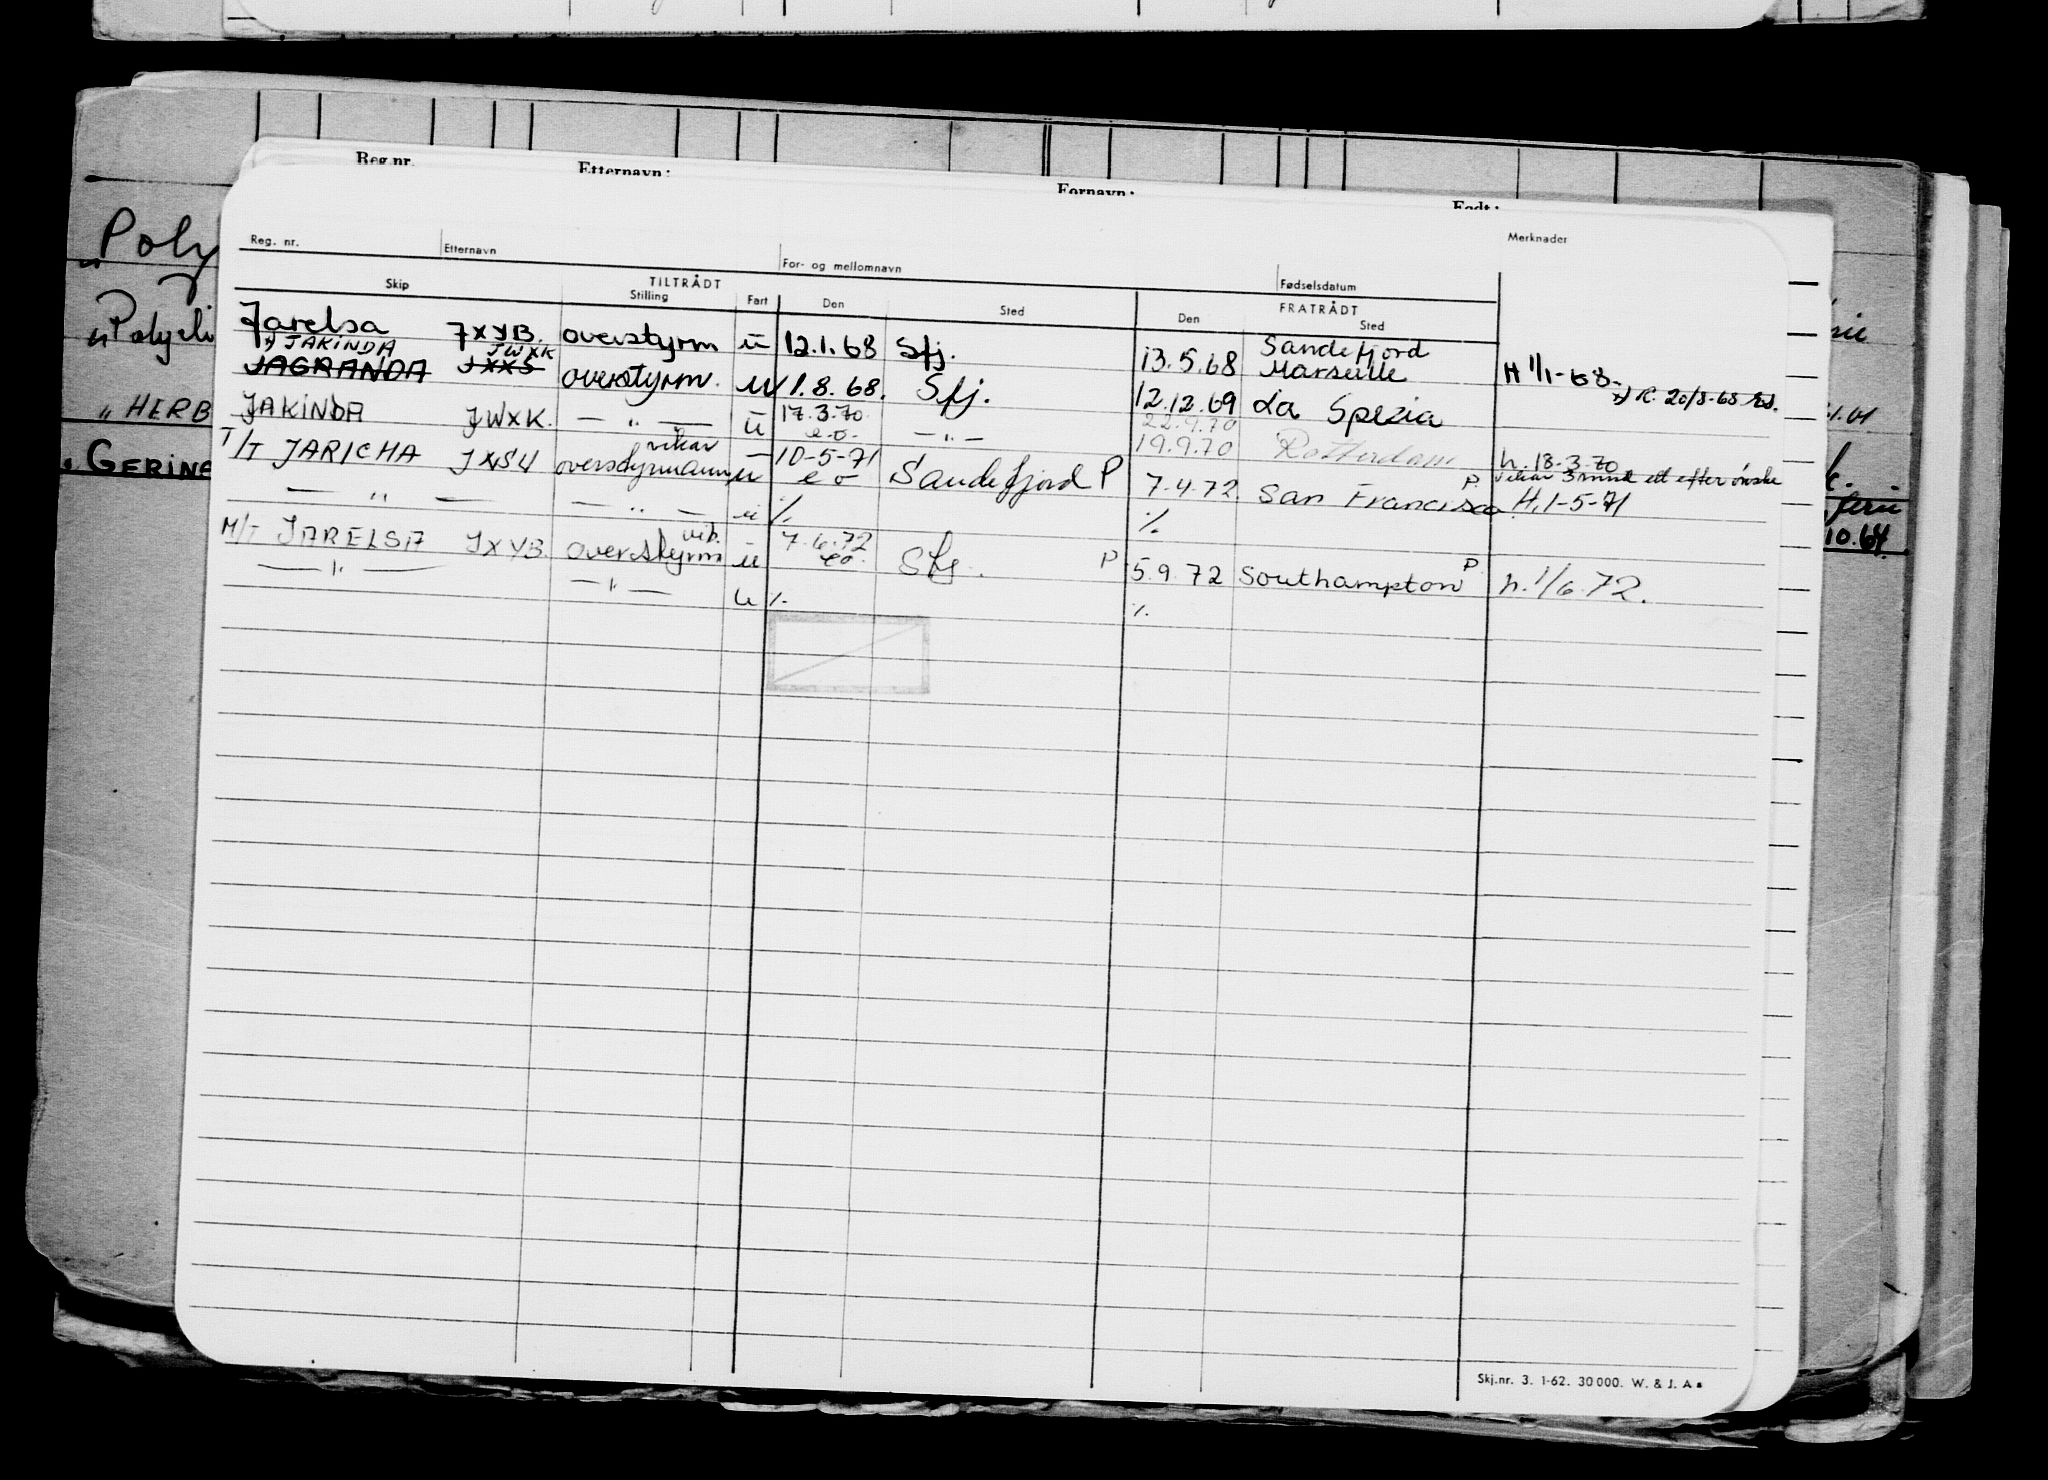 Reg.nr. Etternavn: Fornavn: Født:
Reg. nr. Etternavn For- og mellomnavn Fødselsdatum Merknader
TILTRÅDT FRATRÅDT
Skip Stilling Fart Den Sted Den Sted
Jarelsa JXYB. overstyrm u 12.1.68 Sfj. 13.5.68 Sandefjord H 1/1-68.
x) JAKINDA JWXK Marseille
JAGRANDA JXXS overstyrm. u 1.8.68. Sfj. 12.12.69 La Spezia x) R. 20/8-68
JAKINDA JWXK. — " — u 17.3.70 e.o. — " — 22.9.70 19.9.70 Rotterdam h. 18-3-70
T/T JARICHA JXSU vikar overstyrmann u 10-5-71 e o Sandefjord P 7.4.72 San Francisco P vikar 3 mnd efter ønske
— " — — " — u % % H. 1-5-71
M/T JARELSA JXYB. overstyrm vik. u 7.6.72 eo. Sfj. P 5.9.72 Southampton P h. 1/6.72.
— " — — " — u % %
Poly
HERB
GERINE
10.64.
Skj.nr. 3. 1-62. 30 000. W. & J. A s